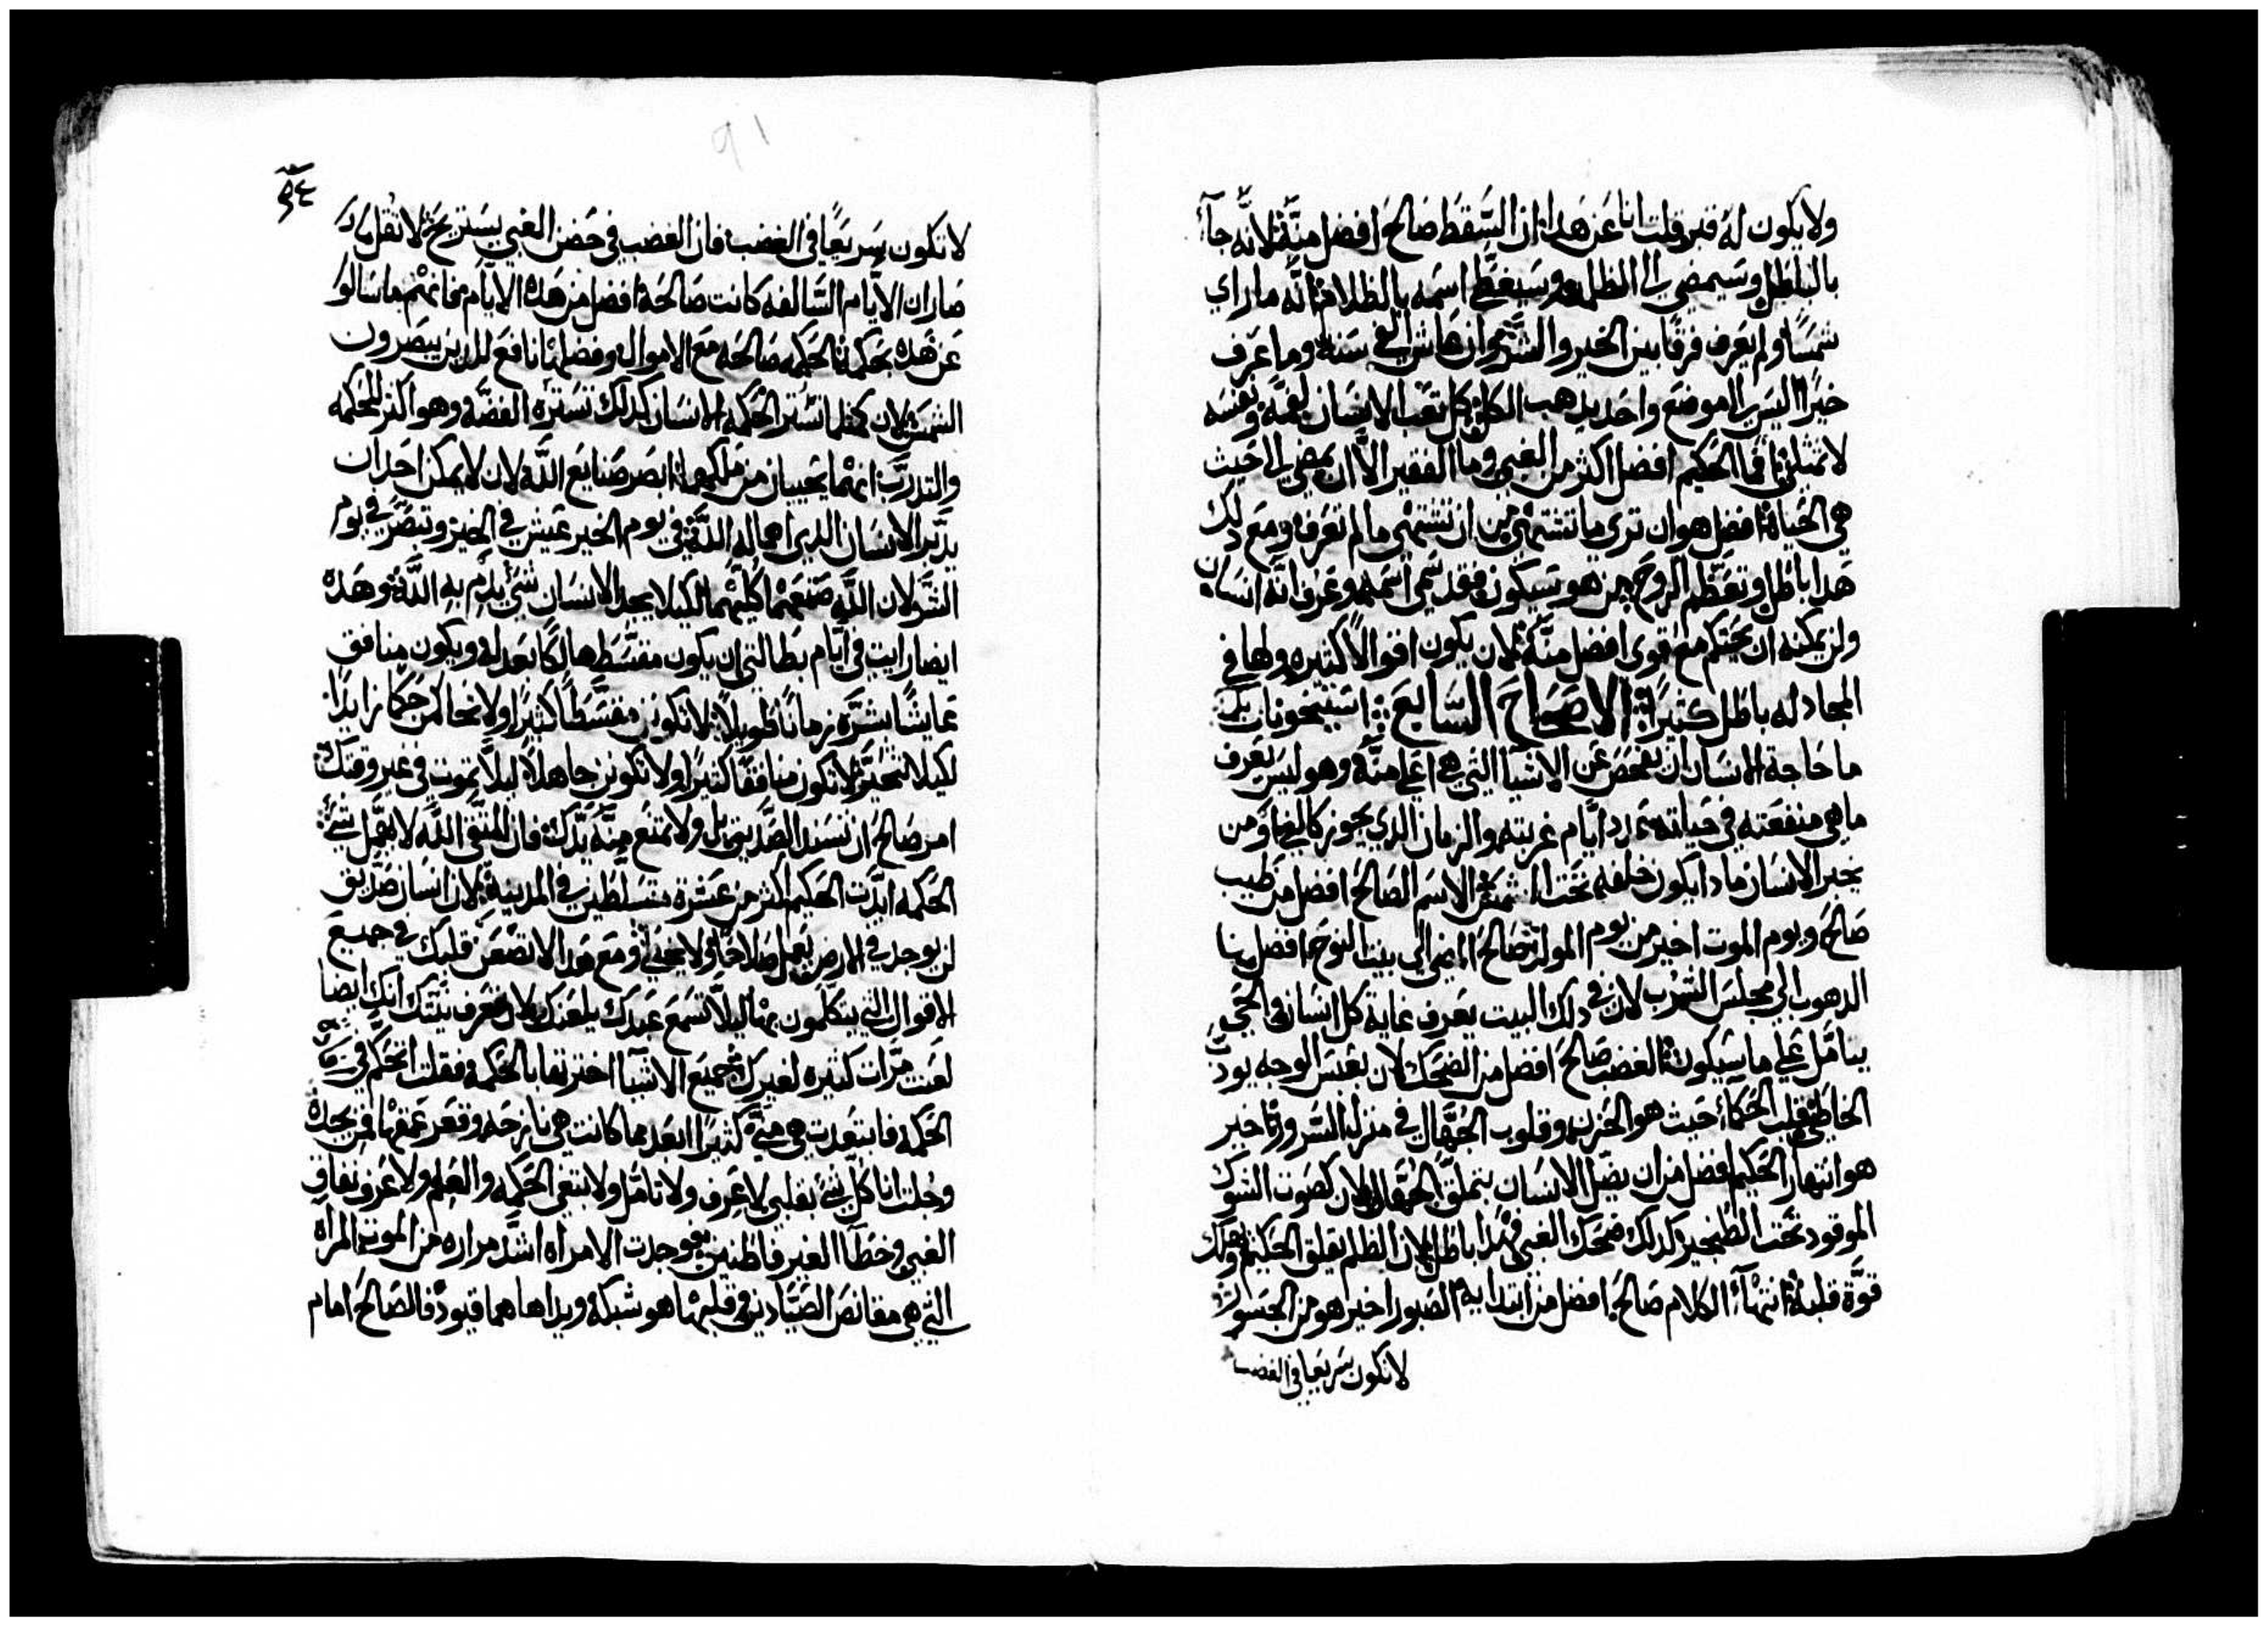 ولا يكون له قبر قلت انا عن هدا ان السقط صالح افضل منه لانه جآء
بالباطل وسيمضي الى الظلمه وسيغطي اسمه بالظلام انه ما راي
شمسًا ولم يعرف فرقًا بين الخير والشر وان عاش الفي سنه وما عرف
خيرًا اليس الى موضع واحد يدهب الكل كل تعب الانسان لفمه ونفسه
لا تمتلي فما الحكيم افضل اكثر من الغبي وما الفقير الا ان يمضي الى حيث
هي الحياة افضل هو ان تري ما تشتهي من ان تشتهي ما لم تعرف ومع دلك
هدا باطل وتعظم الروح من هو سيكون فقد سمي اسمه وعرف انه انسان
ولن يمكنه ان يحتكم مع اقوى افضل منه لان يكون اقوالاً كثيره ولها في
المجادله باطل كتيرًا الاصحاح السابع
ما حاجة الانسان ان يفحص عن الاشيا التي هي اعلي منه وهو ليس يعرف
ما هي منفعته في حياته بعدد ايام غربته والزمان الدي يجوز كالفي ومن
يخبر الانسان مادا يكون خلفه تحت الشمس الاسم الصالح افضل من طيب
صالح ويوم الموت اخير من يوم المولد صالح المضي الي بيت النوح افضل من
الدهوب الي مجلس الشرب لان في دلك البيت يعرف غاية كل انسان والحي
يتامل علي ما سيكون الغضب صالح افضل من الضحك لان بعبس الوجه يودب
الخاطي قلب الحكمآء حيث هو الحزن وقلوب الجهال في منزل السرور اخير
هو انتهار الحكيم افضل من ان يضل الانسان بتملق الجهال لان كصوت الشوك
الموقود تحت الطنجير كدلك ضحك الغبي وهدا باطل لان الظلم يقلق الحكيم ويهلك
قوة قلبه انتهآء الكلام صالح افضل من ابتدايه الصبور اخير هو من الجسور
لا تكون سريعا في الغضب
٩٤
91
لا تكون سريعًا في الغضب فان الغضب في حضن الغبي يستريح لا تقل مادا
صار ان الايام السالفه كانت صالحة افضل من هده الايام فانتم ما سالتو
عن هده بحكمة الحكمه صالحه مع الاموال وفضلها نافع للدين يبصرون
الشمس لان كما تستر الحكمه الانسان كدلك تستره الفضه وهو اكثر للحكمه
والتدرب انهما يحييان من ملكهما ابصر صنايع الله لان لا يمكن احد ان
يدبر الانسان الدي اهماله الله في يوم الخير عيش في الخير وتبصر في يوم
الشر لان الله صنعهما كليهما لكيلا يجد الانسان شي يدم به الله وهده
ايضا رايت في ايام بطالتي ان يكون مقسط هالكًا بعدله ويكون منافق
عايشًا بشره زمانًا طويلاً لا تكون مقسطًا كثيرًا ولا تحاكمن حكمًا زايدًا
لكيلا تتحير لا تكون منافقًا كثيرًا ولا تكون جاهلاً ليلا تموت في غير وقتك
امر صالح ان تسند الصديق بل ولا تمنع منه يدك فان المتقي الله لا يهمل شي
الحكمه ايدت الحكيم اكثر من عشرة متسلطين في المدينة لان انسان صديق
لن يوجد في الارض يعمل صلاحًا ولا يخطي ومع هدا لا تضعن قلبك في جميع
الاقوال التي يتكلمون بها ليلا تسمع عبدك يلعنك لان تعرف نيتك انك ايضا
لعنت مرات كثيره لغيرك جميع الاشيآ اختبرتها بالحكمة فقلت اتحكم في
الحكمه فابتعدت هي مني كثيرًا ابعد مما كانت هي نازحه وقعر عمقها فمن يجده
وجلت انا كل شي بقلبي لاعرف ولا تامل ولابتغي الحكمه والعلم ولاعرف نفاق
الغبي وخطآ الغير فاطنين فوجدت الامراه اشد مراره من الموت المراه
التي هي مقانص الصيادين وقلبها هو شبكة ويداها هما قيود فالصالح امام